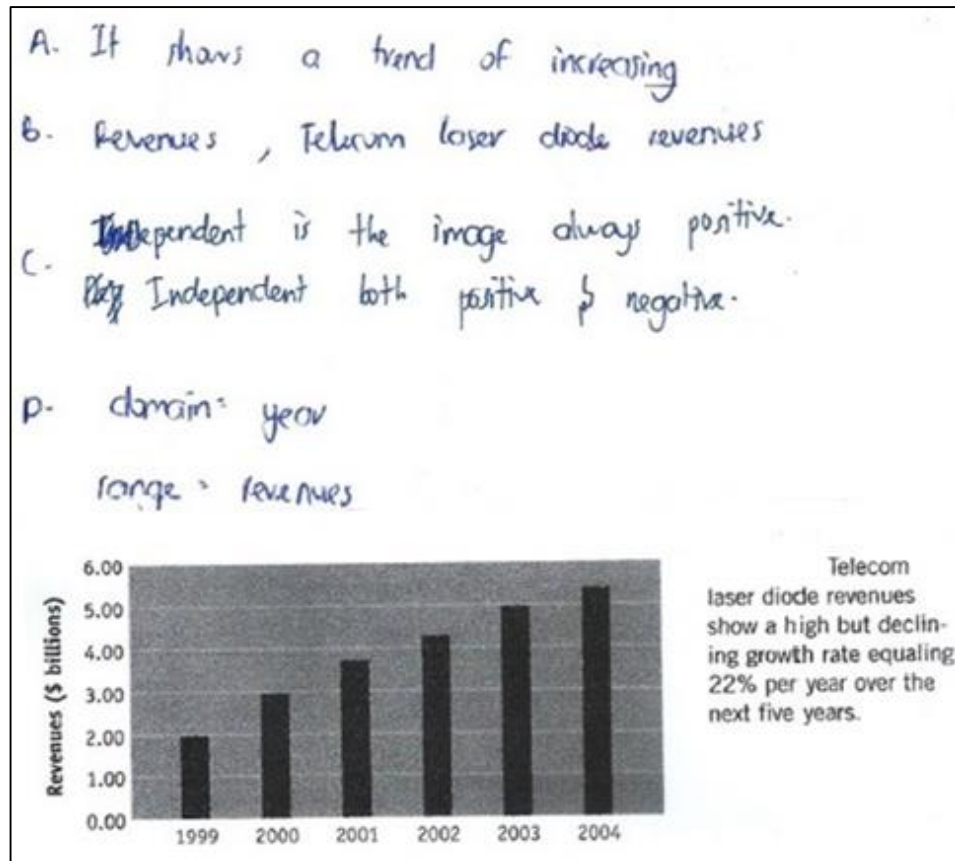 A. It shows a trend of increasing
B. Revenues, Telecum laser diode revenues
Independent is the image always positive.
C.
Independent both positive & negative.
D. domain = year
range = revenues
6.00
5.00
4.00
3.00
2.00
1.00
0.00
Revenues ($ billions)
1999 2000 2001 2002 2003 2004
Telecom
laser diode revenues
show a high but declin-
ing growth rate equaling
22% per year over the
next five years.